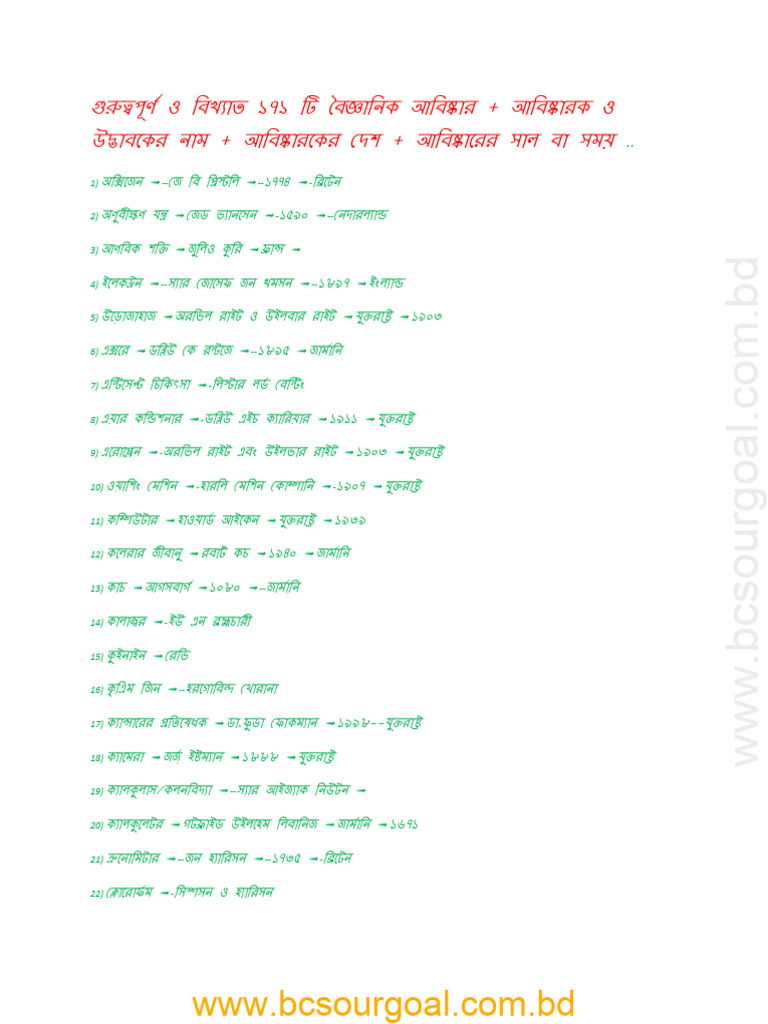 গুরুত্বপূর্ণ ও বিখ্যাত ১৭১ টি বৈজ্ঞানিক আবিষ্কার + আবিষ্কারক ও
উদ্ভাবকের নাম + আবিষ্কারকের দেশ + আবিষ্কারের সাল বা সময় ..
1) অক্সিজেন →--জে বি প্রিস্টলি →--১৭৭৪ →-ব্রিটেন
2) অণুবীক্ষণ যন্ত্র →জেড ভ্যানসেন →-১৫৯০ →--নেদারল্যান্ড
3) আণবিক শক্তি →জুলিও কুরি →ফ্রান্স →
4) ইলেকট্রন →--স্যার জোসেফ জন থমসন →--১৮৯৭ →ইংল্যান্ড
5) উড়োজাহাজ →অরভিল রাইট ও উইলবার রাইট →যুক্তরাষ্ট্র →১৯০৩
6) এক্সরে →ডব্লিউ কে রন্টজে →--১৮৯৫ →জার্মানি
7) এন্টিসেপ্ট চিকিৎসা →-লিস্টার লর্ড বেন্টিং
8) এয়ার কন্ডিশনার →-ডব্লিউ এইচ ক্যারিয়ার →১৯১১ →যুক্তরাষ্ট্র
9) এরোপ্লেন →-অরভিল রাইট এবং উইলভার রাইট →১৯০৩ →যুক্তরাষ্ট্র
10) ওয়াশিং মেশিন →-হারলি মেশিন কোম্পানি →-১৯০৭ →যুক্তরাষ্ট্র
11) কম্পিউটার →হাওয়ার্ড আইকেন →যুক্তরাষ্ট্র →১৯৩৯
12) কলেরার জীবানু →রবার্ট কচ →১৯৪০ →জার্মানি
13) কাচ →আগসবার্গ →১০৮০ →--জার্মানি
14) কালাজ্বর →-ইউ এন ব্রহ্মচারী
15) কুইনাইন →রেভি
16) কৃত্রিম জিন →--হরগোবিন্দ খোরানা
17) ক্যান্সারের প্রতিষেধক →ডা.ফুডা ফোকম্যান →১৯৯৮--যুক্তরাষ্ট্র
18) ক্যামেরা →জর্জ ইষ্টম্যান →১৮৮৮ →যুক্তরাষ্ট্র
19) ক্যালকুলাস/কলনবিদ্যা →--স্যার আইজ্যাক নিউটন →
20) ক্যালকুলেটর →গটফ্রাইড উইলহেম লিবানিজ →জার্মানি →১৬৭১
21) ক্রনোমিটার →--জন হ্যারিসন →--১৭৩৫ →-ব্রিটেন
22) ক্লোরোফর্ম →-সিম্পসন ও হ্যারিসন
www.bcsourgoal.com.bd
www.bcsourgoal.com.bd